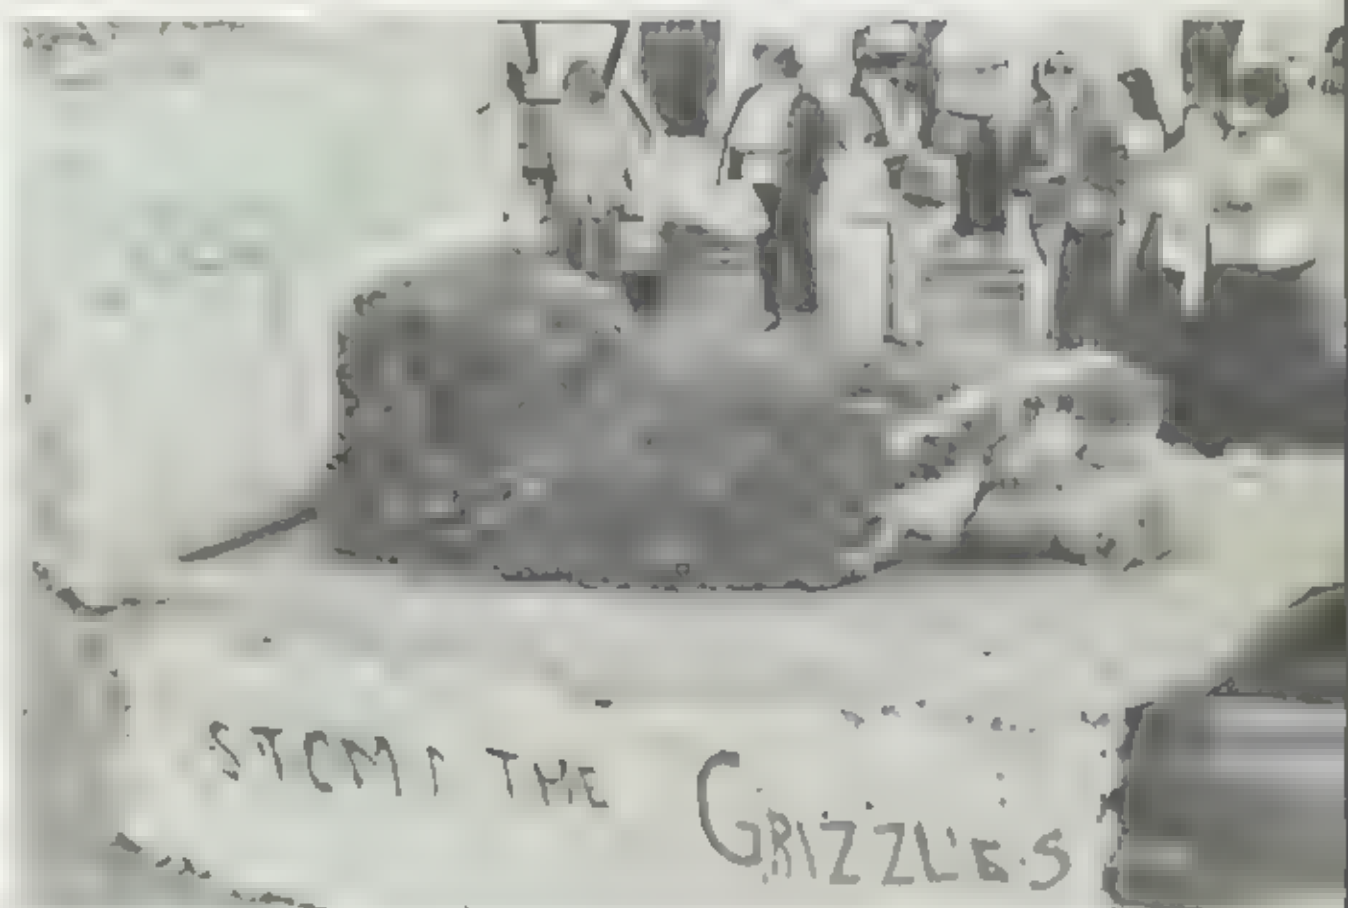 STOMP THE GRIZZLIES